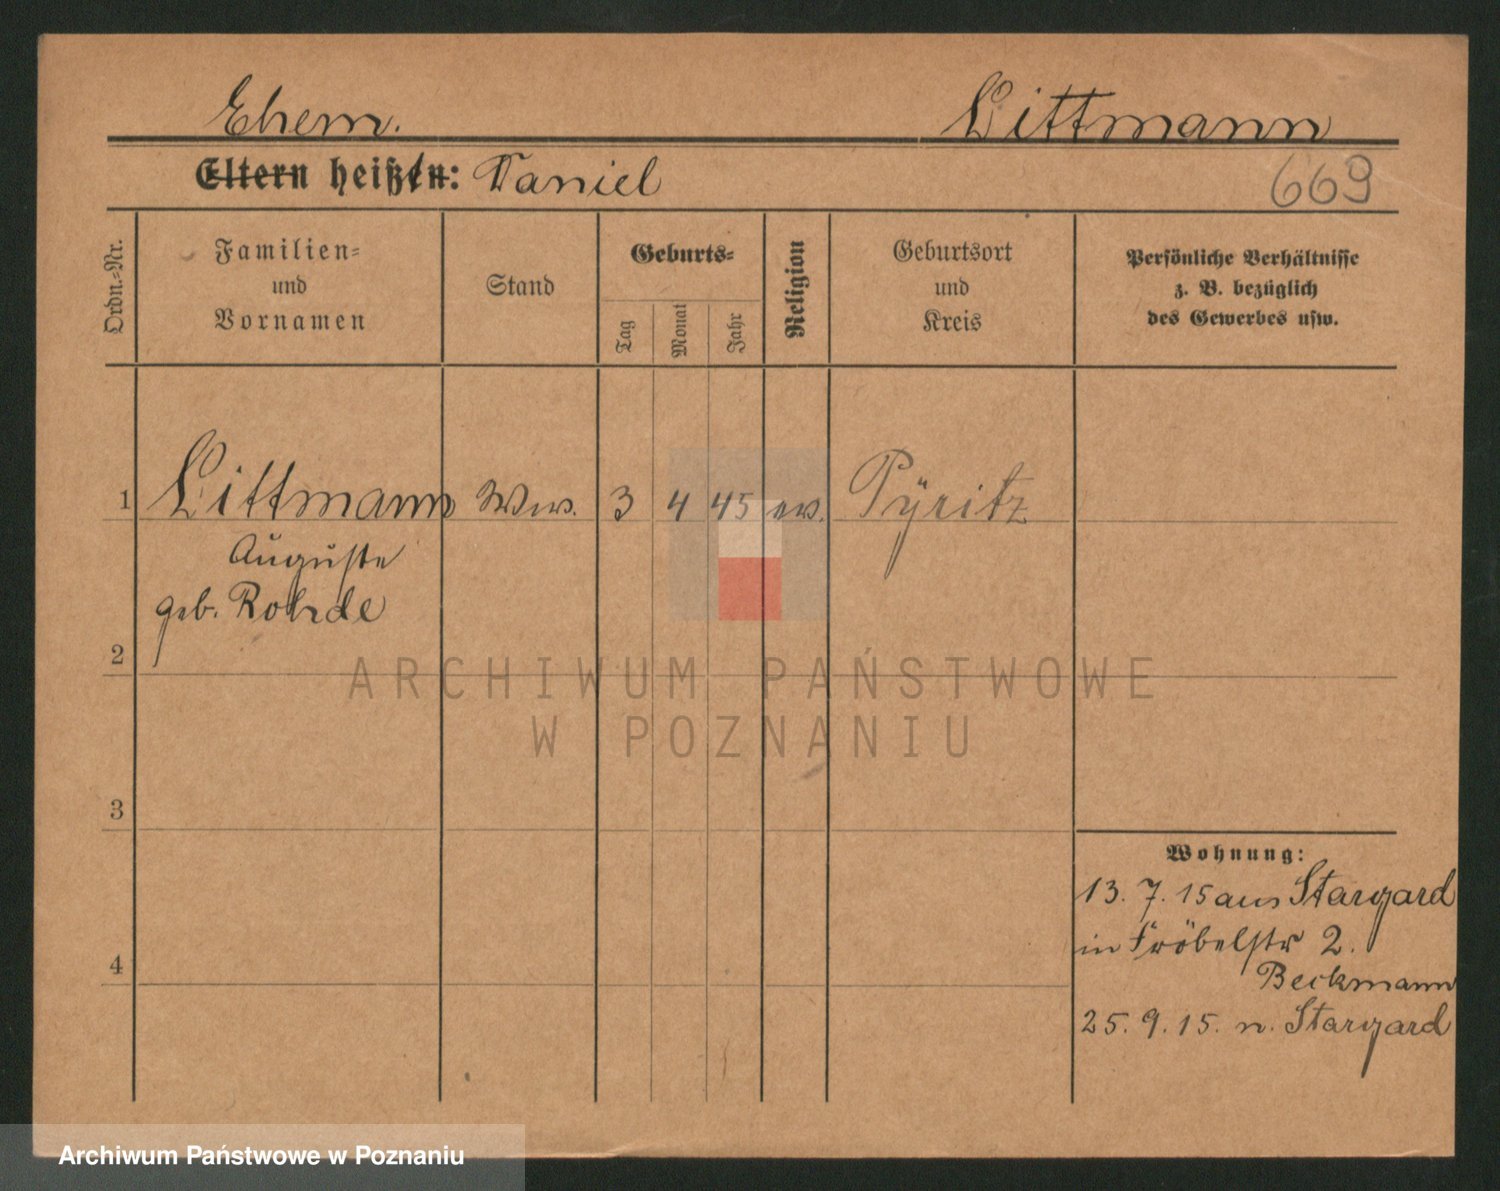 Ehem. Littmann
Eltern heißtn: Daniel
669
Ordn.-Nr.
Familien-
und
Vornamen
Stand
Geburts-
Tag
Monat
Jahr
Religion
Geburtsort
und
Kreis
Persönliche Verhältnisse
z. B. bezüglich
des Gewerbes usw.
1 Littmann Ww. 3 4 45 ev. Pÿritz
Auguste
geb. Rohde
2
ARCHIWUM PAŃSTWOWE
W POZNANIU
3
Wohnung:
13. 7. 15 aus Stargard
in Fröbelstr 2.
Beckmann
4
25. 9. 15. n. Stargard
Archiwum Państwowe w Poznaniu